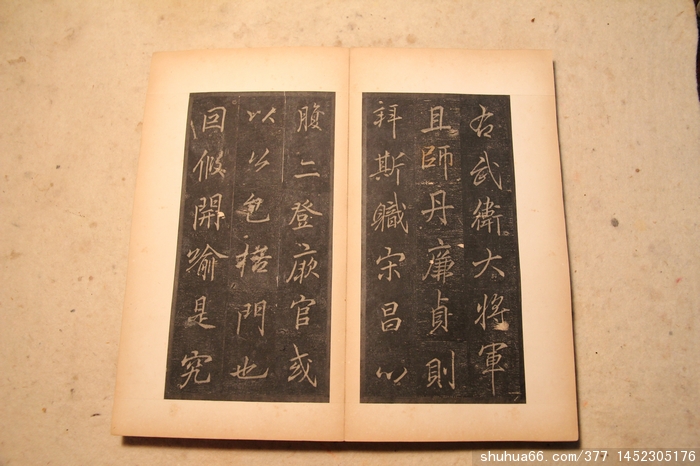 右武衛大將軍
且師丹廉貞則
拜斯職宋昌以
腹二登厥官或
以公包 門也
回俯開喻是究
shuhua66.com/377 1452305176